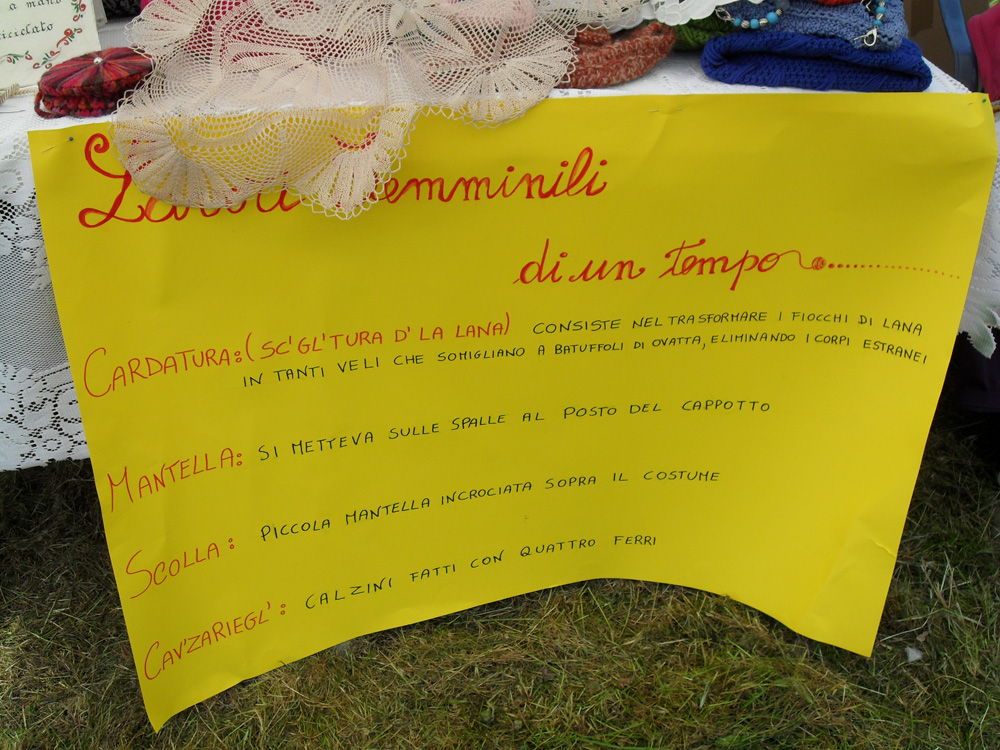 a mano
riciclato
Lavori femminili
di un tempo
CARDATURA: (SC'GL'TURA D' LA LANA) CONSISTE NEL TRASFORMARE I FIOCCHI DI LANA
IN TANTI VELI CHE SOMIGLIANO A BATUFFOLI DI OVATTA, ELIMINANDO I CORPI ESTRANEI
MANTELLA: SI METTEVA SULLE SPALLE AL POSTO DEL CAPPOTTO
SCOLLA: PICCOLA MANTELLA INCROCIATA SOPRA IL COSTUME
CAV'ZARIEGL': CALZINI FATTI CON QUATTRO FERRI